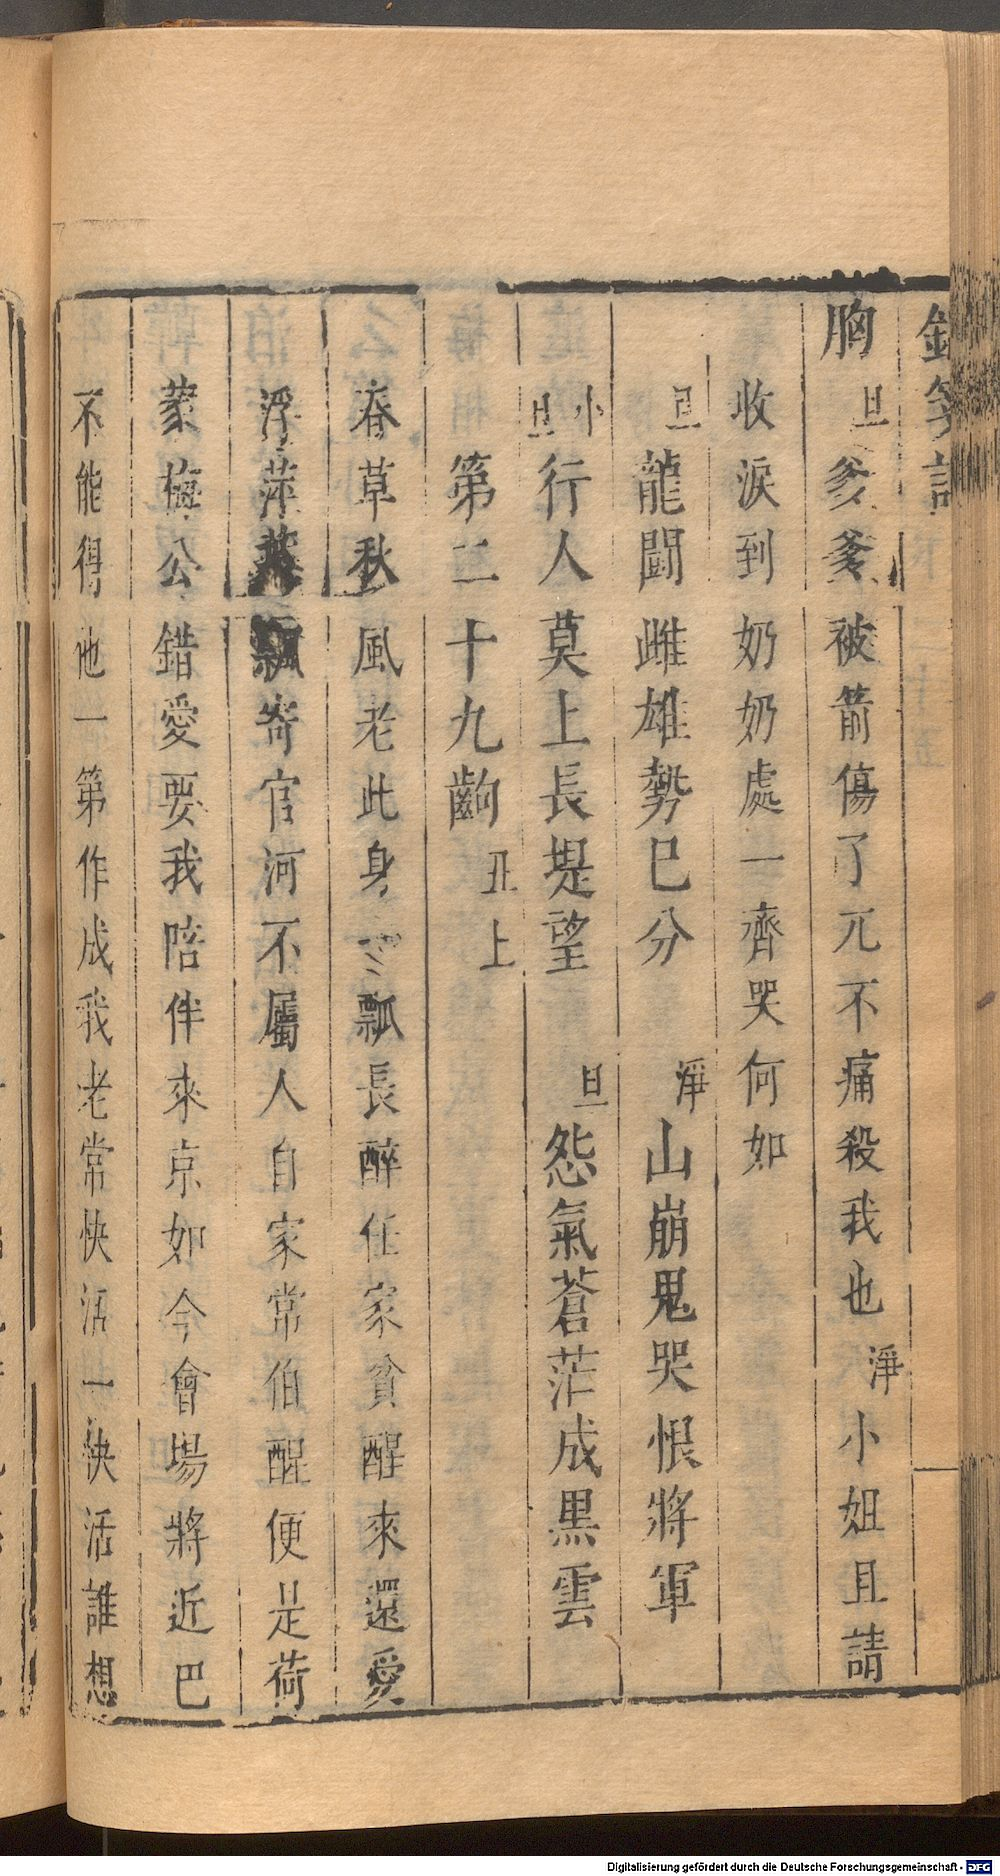 釵釧記
胸旦爹爹被箭傷了兀不痛殺我也淨小姐且請
收淚到奶奶處一齊哭何如
旦龍鬪雌雄勢巳分 淨山崩鬼哭恨將軍
小旦行人莫上長堤望 旦怨氣蒼茫成黑雲
第二十九齣丑上
春草秋風老此身 瓢長醉任家貧醒來還愛
浮萍 飄寄官河不屬人自家常伯醒便是荷
蒙梅公錯愛要我陪伴來京如今會場將近巴
不能得他一第作成我老常快活一快活誰想
Digitalisierung gefördert durch die Deutsche Forschungsgemeinschaft - DFG